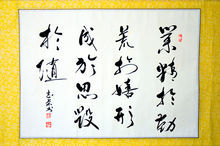 業精於勤
荒於嬉形
成於思毀
於随